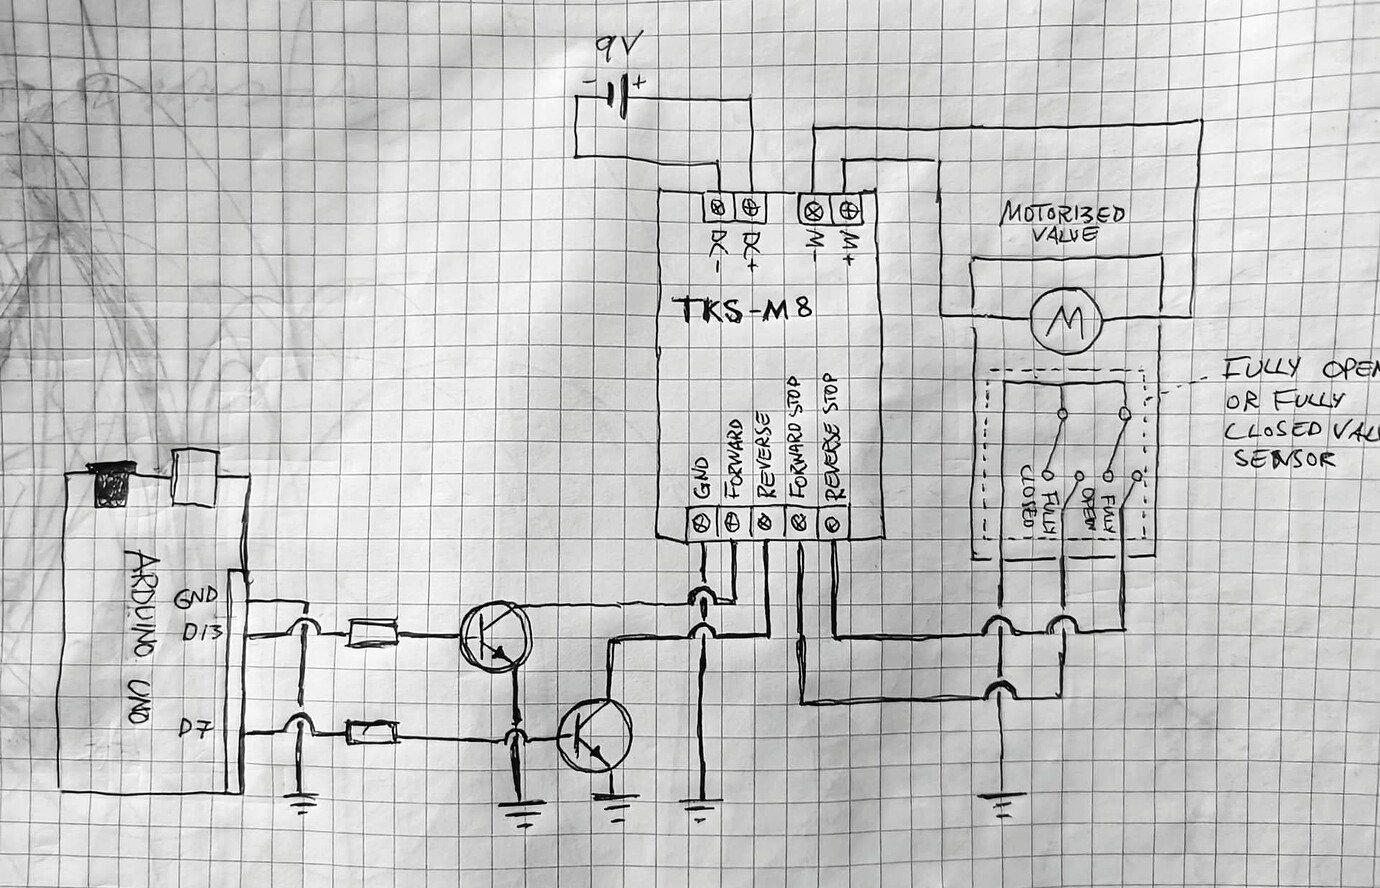 9V
- +
-DC
+DC
-M
+M
TKS-M8
MOTORIZED
VALVE
FULLY OPEN
OR FULLY
CLOSED VAL
SENSOR
FULLY
CLOSED
FULLY
OPEN
GND
FORWARD
REVERSE
FORWARD STOP
REVERSE STOP
M
ARDUINO UNO
GND
D13
D7